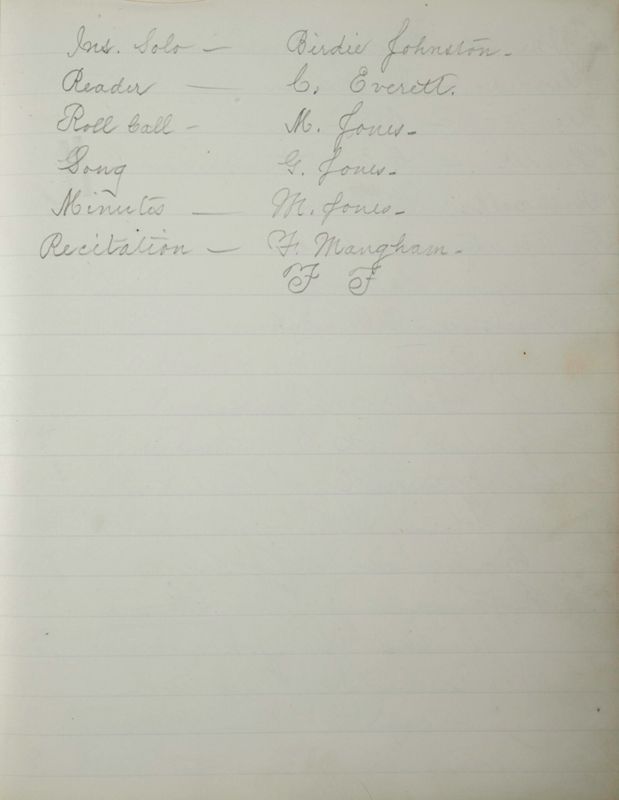 Ins. Solo — Birdie Johnston -
Reader — C. Everett.
Roll Call - M. Jones -
Song G. Jones -
Minutes — M. Jones -
Recitation — F. Mangham -
F F